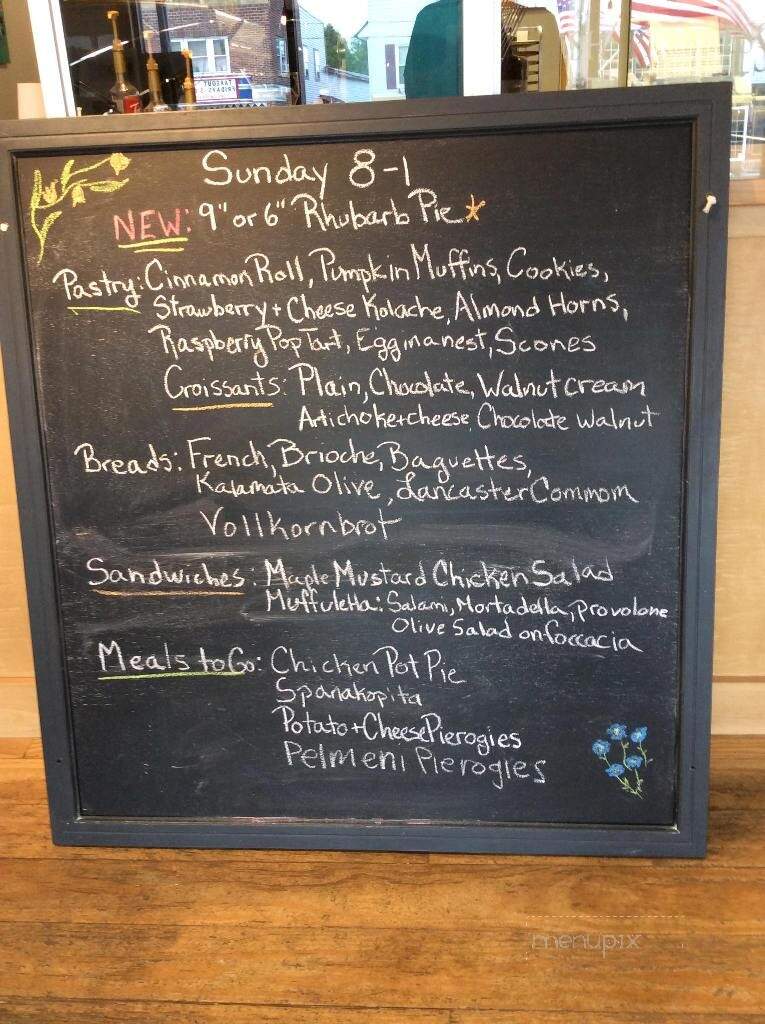 Sunday 8-1
NEW: 9" or 6" Rhubarb Pie*
Pastry: Cinnamon Roll, Pumpkin Muffins, Cookies,
Strawberry + Cheese Kolache, Almond Horns,
Raspberry Pop Tart, Egg in a nest, Scones
Croissants: Plain, Chocolate, Walnut cream
Artichoke + cheese, Chocolate Walnut
Breads: French, Brioche, Baguettes,
Kalamata Olive, Lancaster Commom
Vollkornbrot
Sandwiches: Maple Mustard Chicken Salad
Muffuletta: Salami, Mortadella, Provolone
Olive Salad on foccacia
Meals to Go: Chicken Pot Pie
Spanakopita
Potato + Cheese Pierogies
Pelmeni Pierogies
menupix